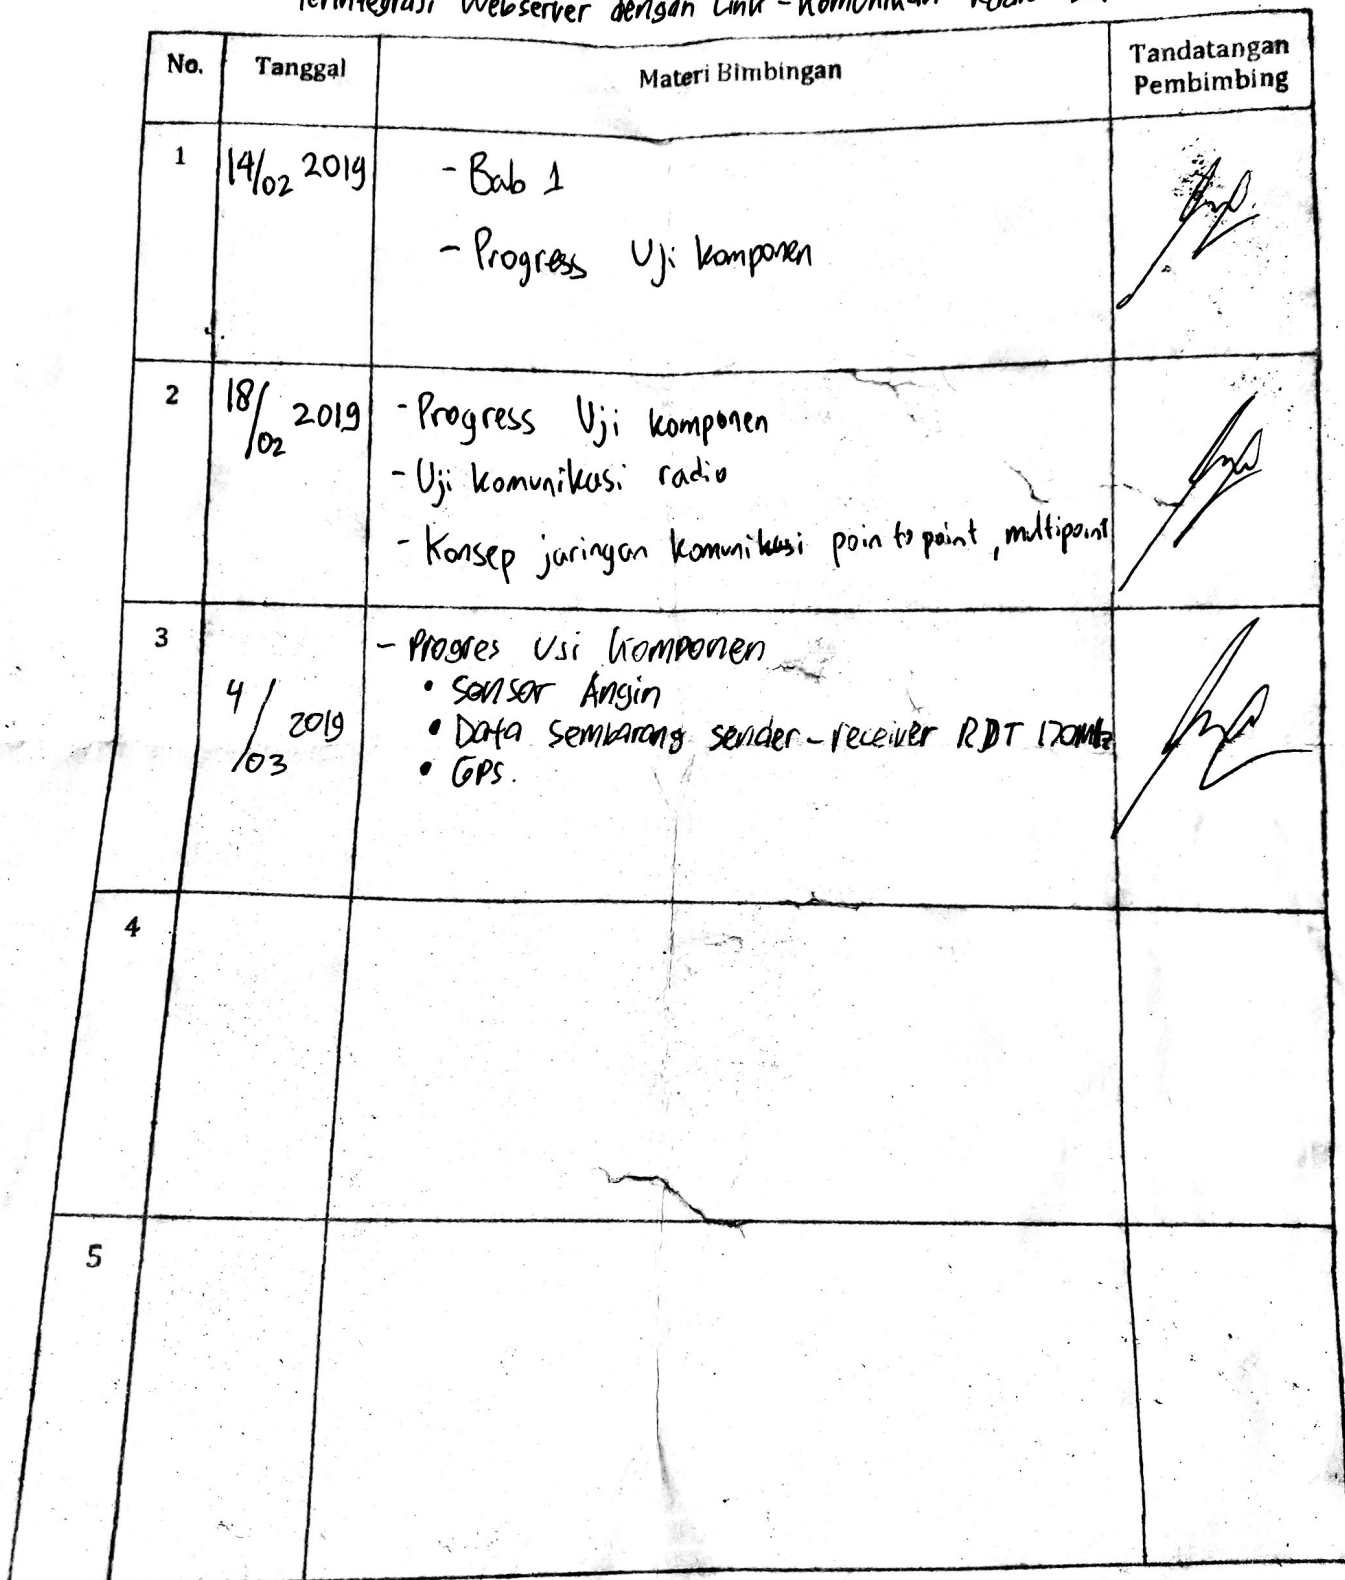 Terintegrasi Webserver dengan Link - Komunikasi
No. Tanggal Materi Bimbingan Tandatangan Pembimbing
1 14/02 2019 - Bab 1
- Progress Uji komponen
2 18/02 2019 - Progress Uji komponen
- Uji komunikasi radio
- Konsep jaringan komunikasi poin to point, multipoint
3 - Progres Usi komponen
• Sensor Angin
4/03 2019 • Data sembarang sender-receiver RDT 170MHz
• GPS.
4
5